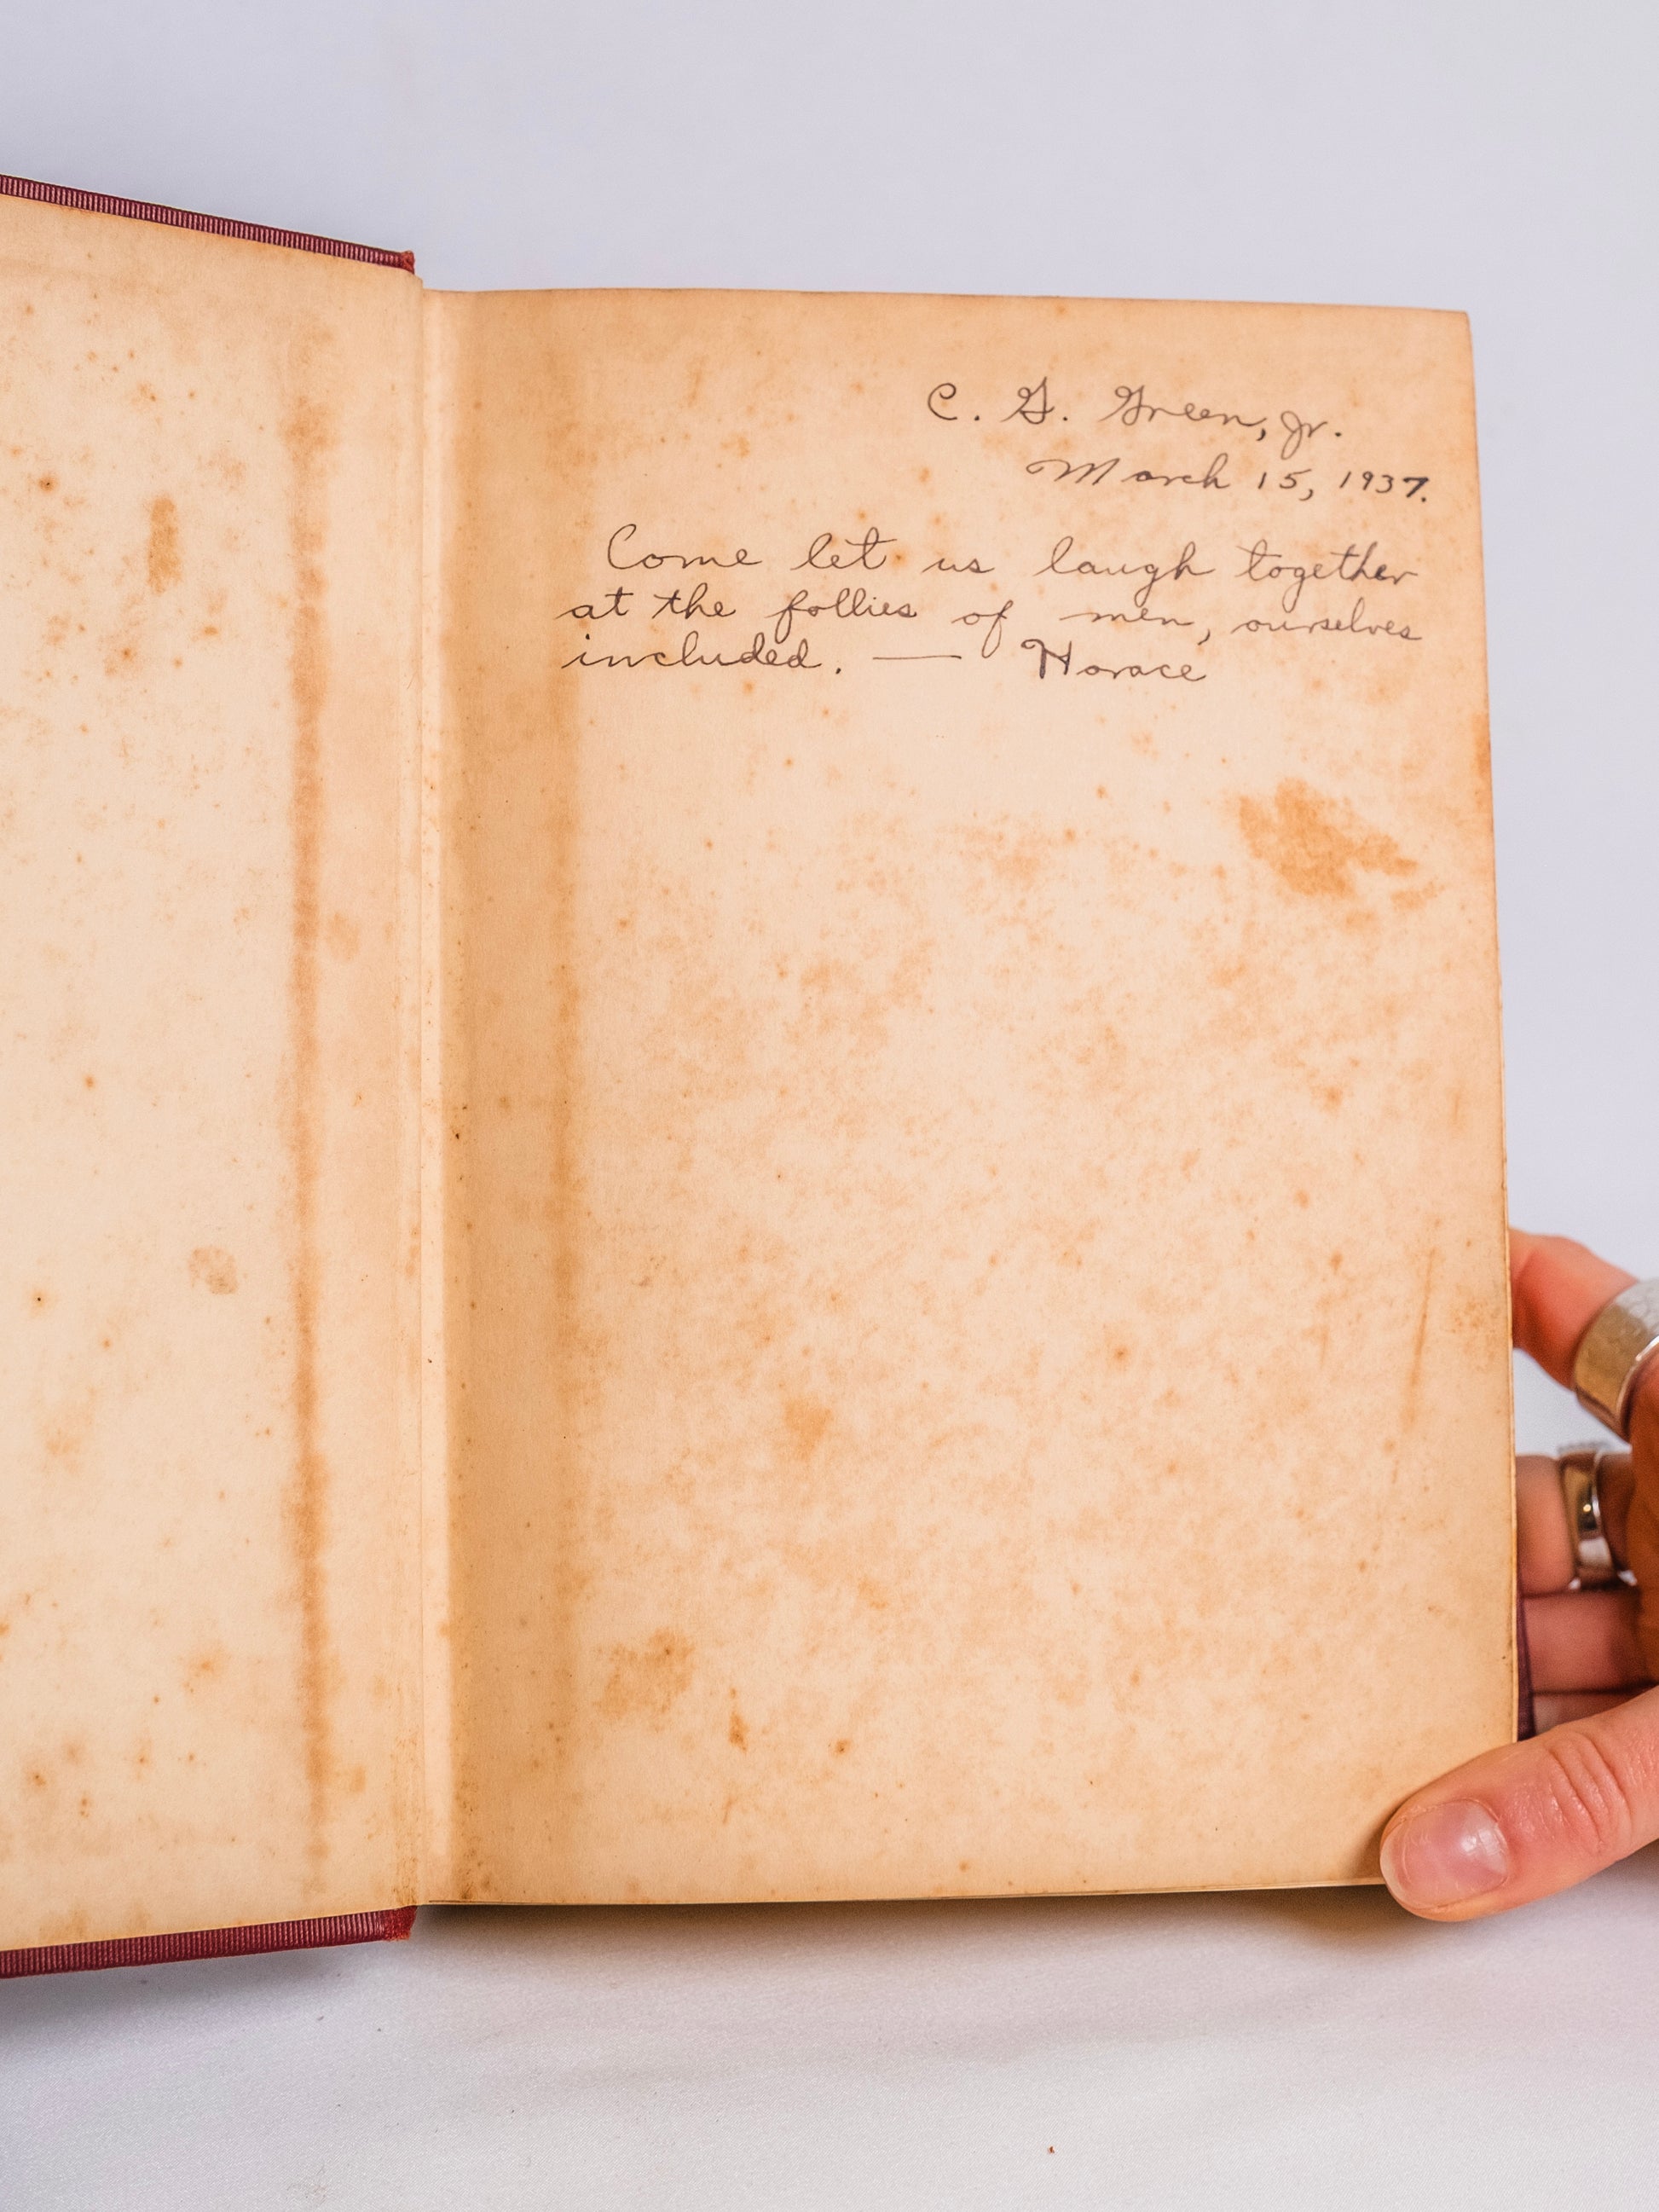 C. G. Green, Jr.
March 15, 1937.
Come let us laugh together
at the follies of men, ourselves
included. — Horace